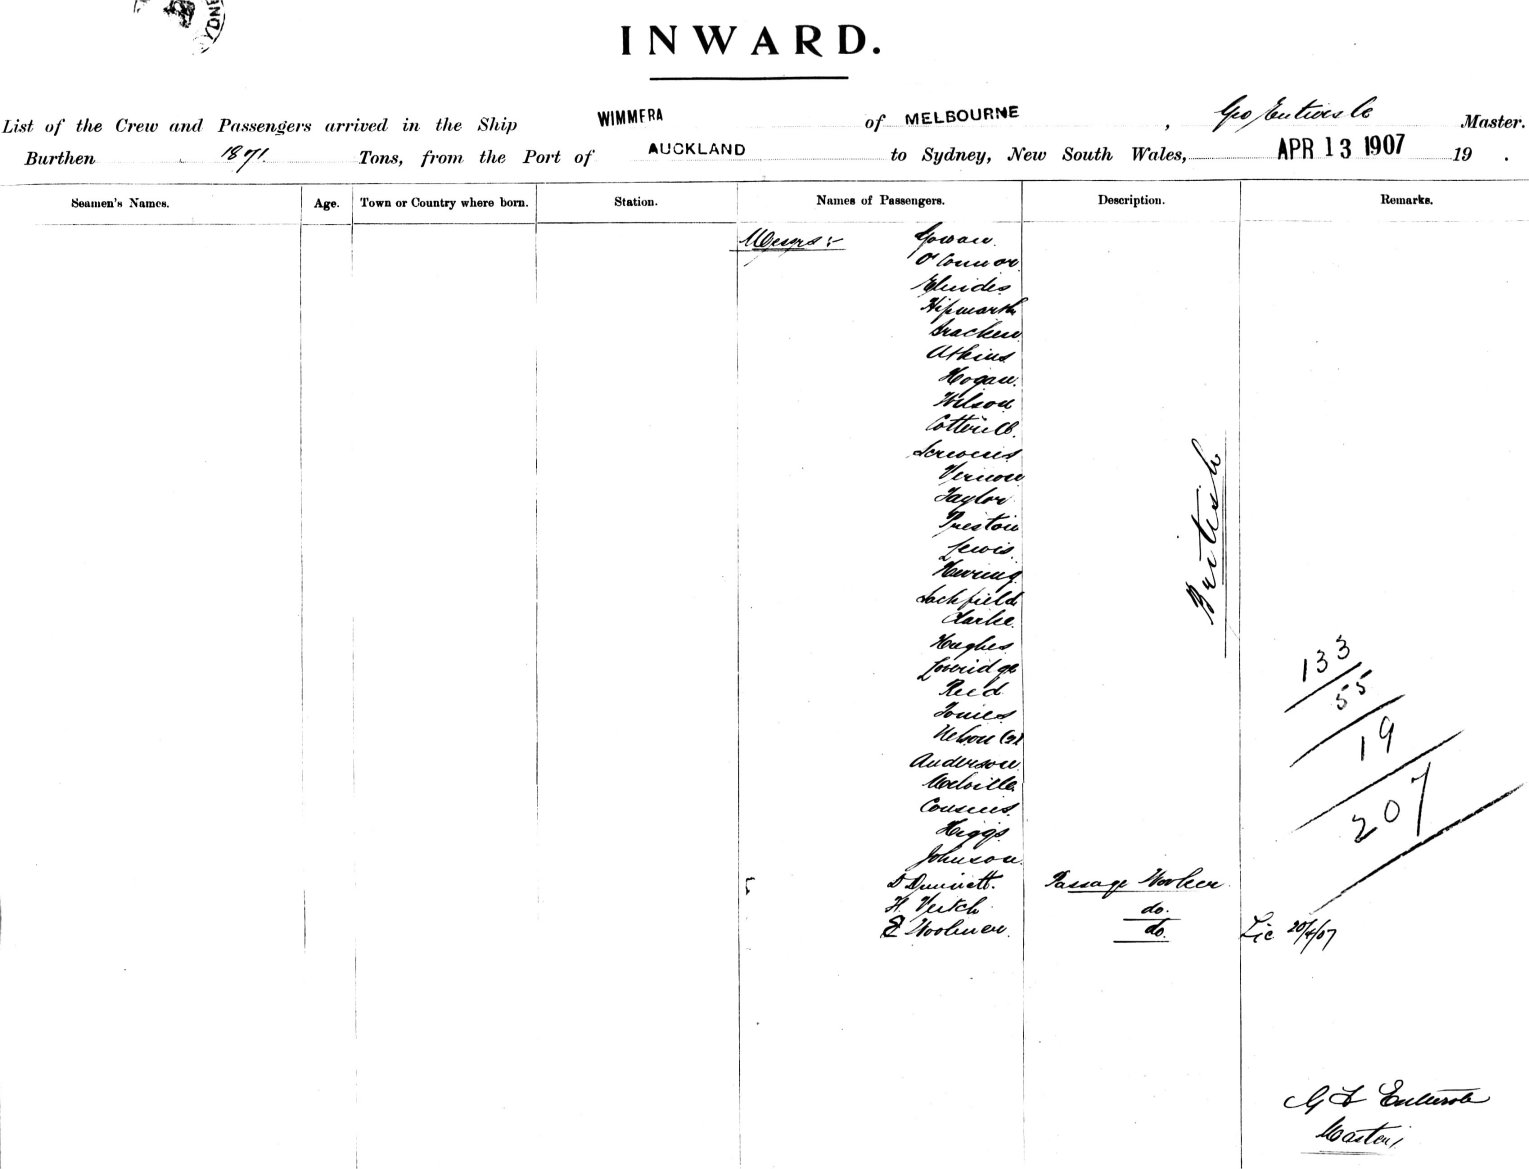 INWARD.
List of the Crew and Passengers arrived in the Ship WIMMERA of MELBOURNE , Geo Entwisle Master.
Burthen 1871. Tons, from the Port of AUCKLAND to Sydney, New South Wales, APR 13 1907 19 .
Seamen's Names. Age. Town or Country where born. Station. Names of Passengers. Description. Remarks.
Messrs :- Gowan.
O'Connor
Hipwarth
Bracken
Atkins
Hogan.
Wilson
Cotterill.
Vernon
Taylor
Preston
Lewis.
Herring
Sackfield
Clarke.
Hughes
Loveridge
Reid
Jones
Nelson (2)
Anderson.
Melville
Cousins.
Higgs
Johnson.
British
133
55
19
207
D Dunnett. Passage Worker
H. Veitch do.
E Woolmer. do. Lic 20/4/07
G F Entwisle
Master